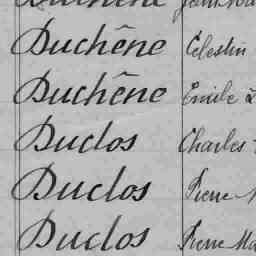 Duchêne
Duchêne Célestin
Duchêne Emile
Duclos Charles
Duclos Pierre
Duclos Pierre